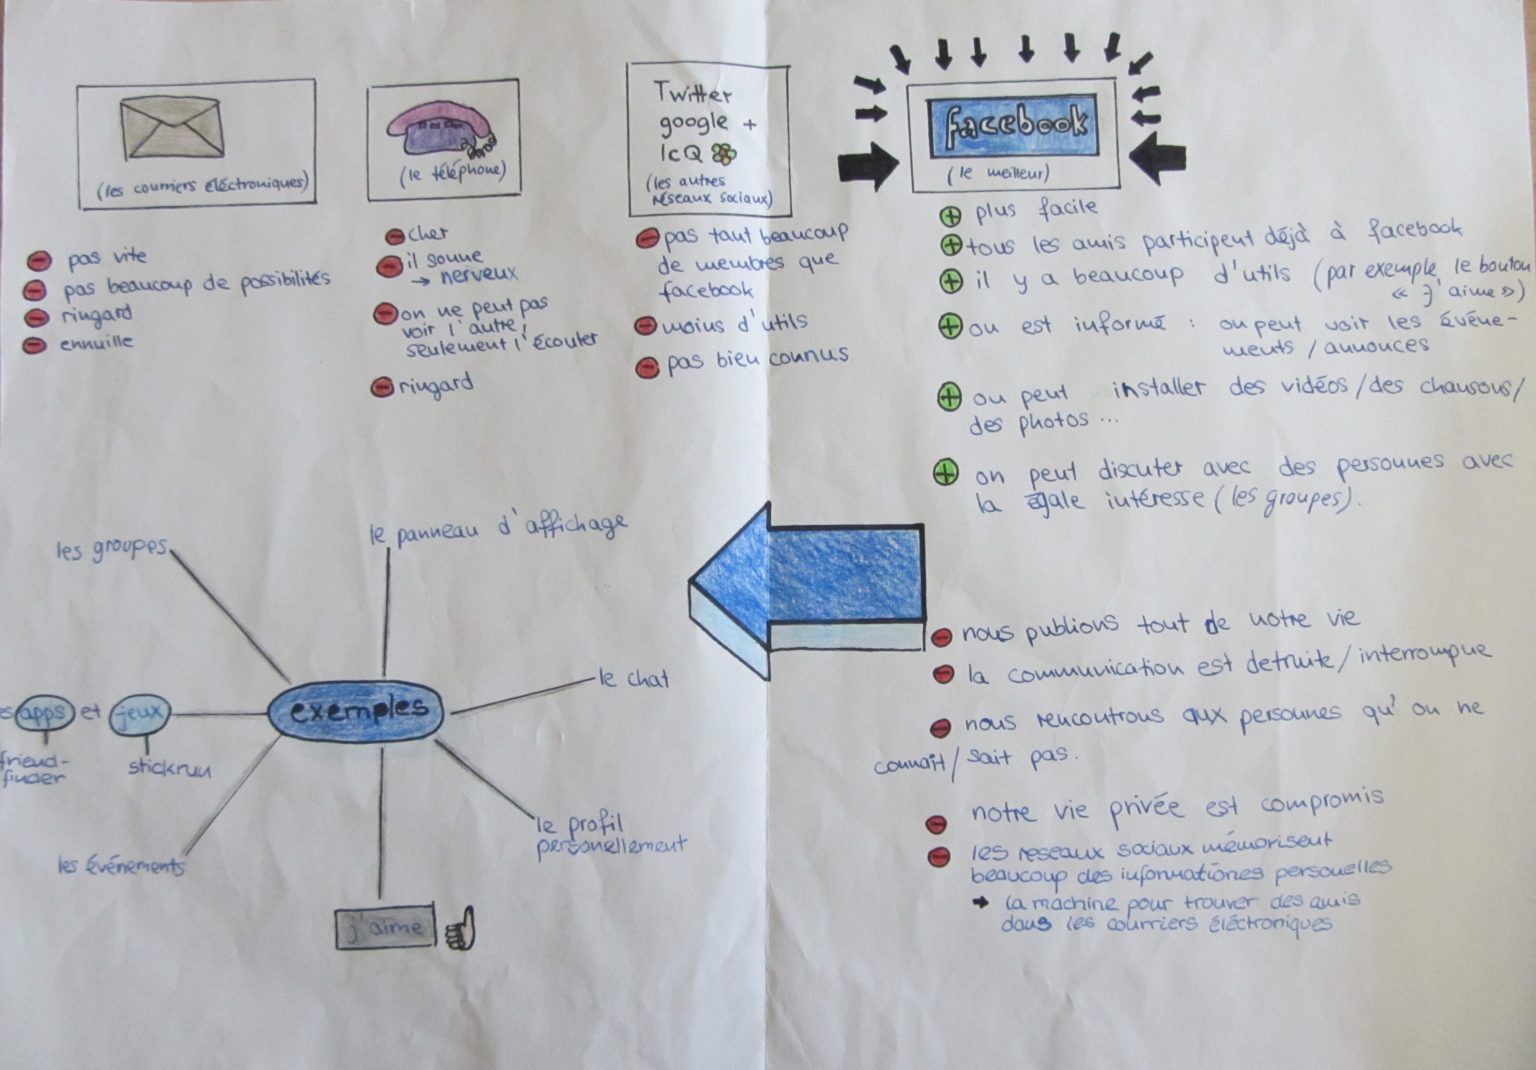 (les courriers éléctroniques)
pas vite
pas beaucoup de possibilités
ringard
ennuille
(le téléphone)
cher
il sonne
→ nerveux
on ne peut pas
voir l'autre,
seulement l'écouter
ringard
Twitter
google +
IcQ
(les autres
réseaux sociaux)
pas taut beaucoup
de membres que
facebook
moins d'utils
pas bien connus
facebook
(le meilleur)
plus facile
tous les amis participent déjà à facebook
il y a beaucoup d'utils (par exemple le bouton
« j'aime »)
on est informé : on peut voir les événe-
ments / annonces
on peut installer des vidéos/des chansons/
des photos ...
on peut discuter avec des personnes avec
la égale intéresse (les groupes).
nous publions tout de notre vie
la communication est detruite/interrompue
nous rencontrons aux personnes qu'on ne
connaît/sait pas.
notre vie privée est compromis
les reseaux sociaux mémorisent
beaucoup des informationes personelles
→ la machine pour trouver des amis
dans les courriers éléctroniques
exemples
les groupes
le panneau d'affichage
le chat
le profil
personellement
j'aime
les événements
es apps et jeux
friend-
finder
stickrun